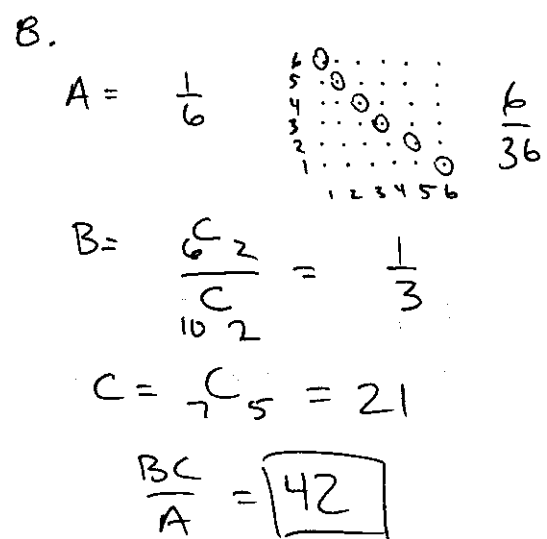 8.
A = 1/6
6
5
4
3
2
1
1 2 3 4 5 6
6/36
B = ₆C₂ / ₁₀C₂ = 1/3
C = ₇C₅ = 21
BC/A = 42